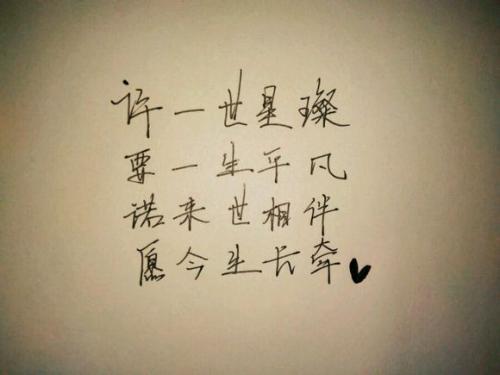 许一世星璨
要一生平凡
诺来世相伴
愿今生长牵